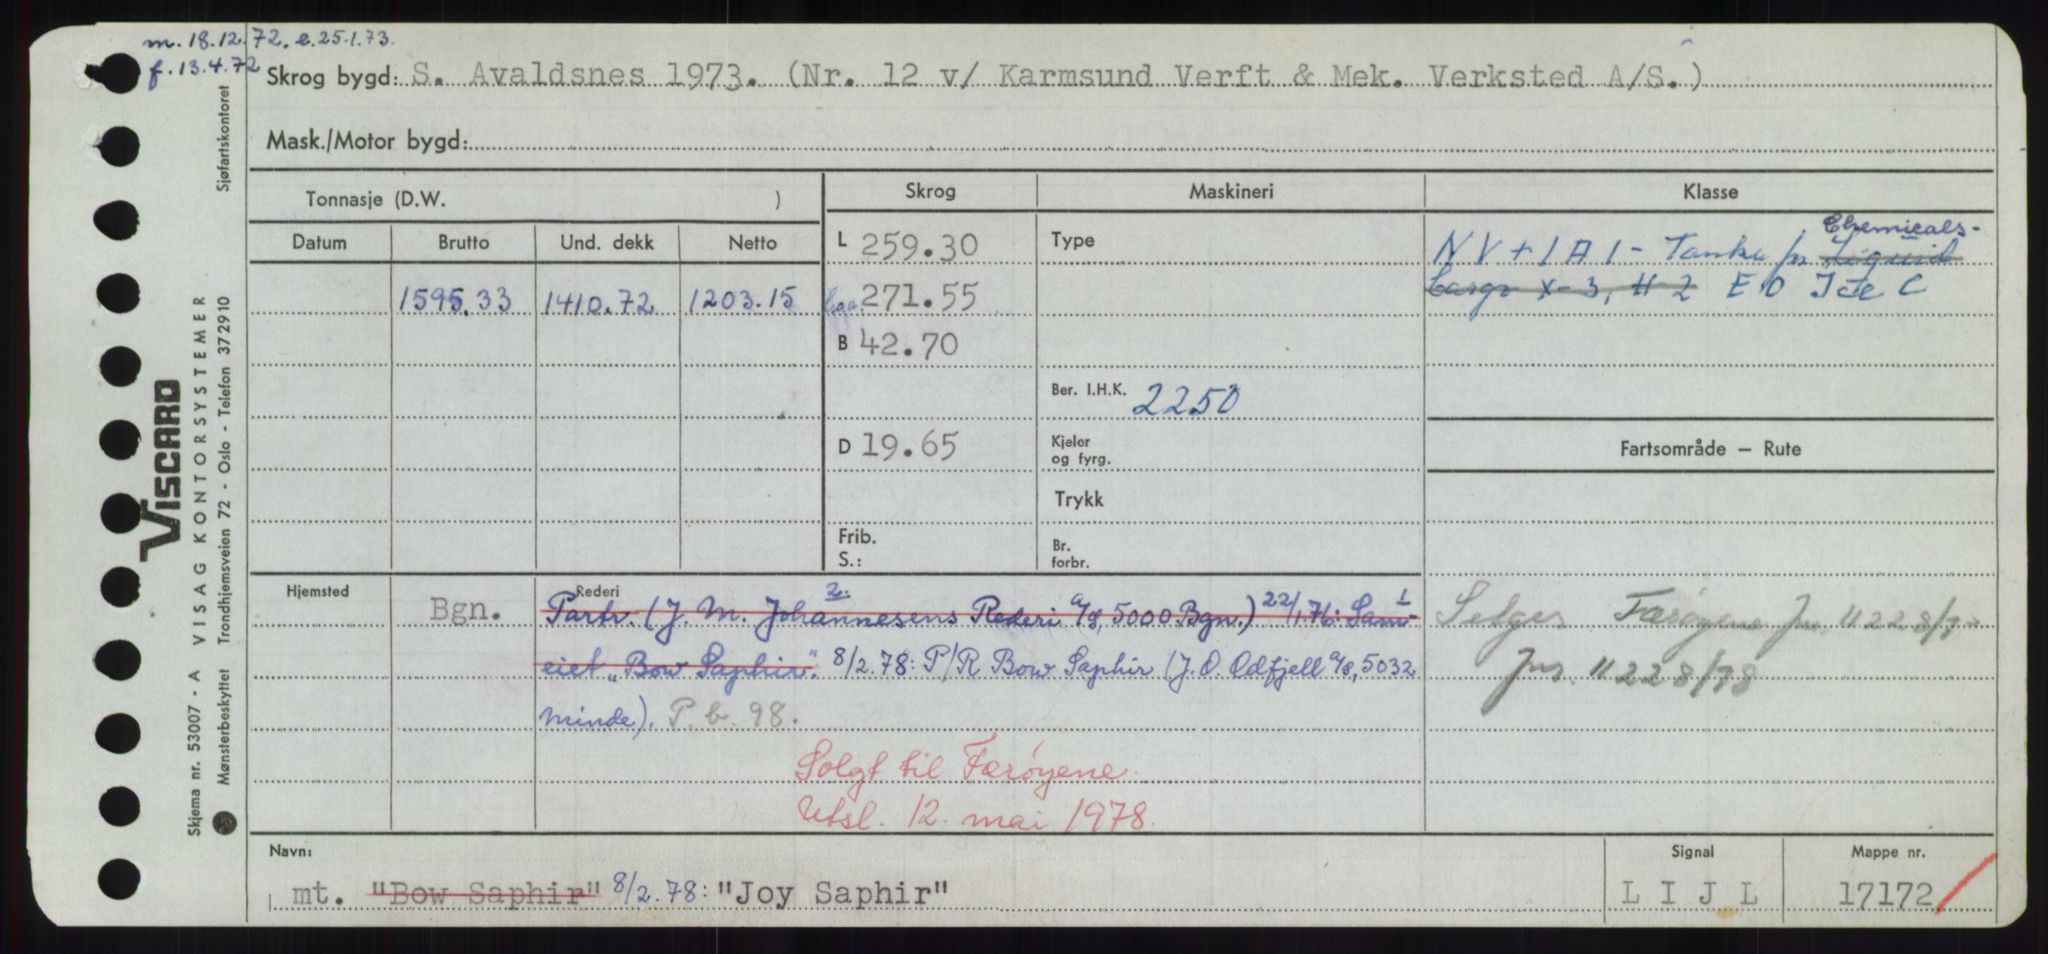 m. 18.12.72. e. 25.1.73.
f. 13.4.72
Skrog bygd: S. Avaldsnes 1973. (Nr. 12 v/ Karmsund Verft & Mek. Verksted A/S.)
Mask./Motor bygd:
Tonnasje (D.W. )
Skrog Maskineri Klasse
Datum Brutto Und. dekk Netto
L 259.30 Type
Chemicals-
NV + 1A1 - Tanks for Liquid
cargo X-3, H-2 EO Ice C
1595.33 1410.72 1203.15
l.o.a. 271.55
B 42.70
Ber. I.H.K. 2250
D 19.65
Kjeler
og fyrg.
Fartsområde — Rute
Trykk
Frib.
S.:
Br.
forbr.
Hjemsted Rederi
Bgn.
2.
Partr. (J. M. Johannesens Rederi A/S, 5000 Bgn.) 22/1.76: Sam-
eiet "Bow Saphir". 8/2.78: P/R Bow Saphir (J. O. Odfjell A/S, 5032
Minde). P.b. 98.
Selges Færøyene jnr. 11228/78
jnr. 11228/78
Solgt til Færøyene.
Utsl. 12. mai 1978.
Navn: Signal Mappe nr.
mt. "Bow Saphir" 8/2.78: "Joy Saphir" L I J L 17172
Sjøfartskontoret
VISCARD
VISAG KONTORSYSTEMER
Trondhjemsveien 72 - Oslo - Telefon 372910
Skjema nr. 53007 - A
Mønsterbeskyttet